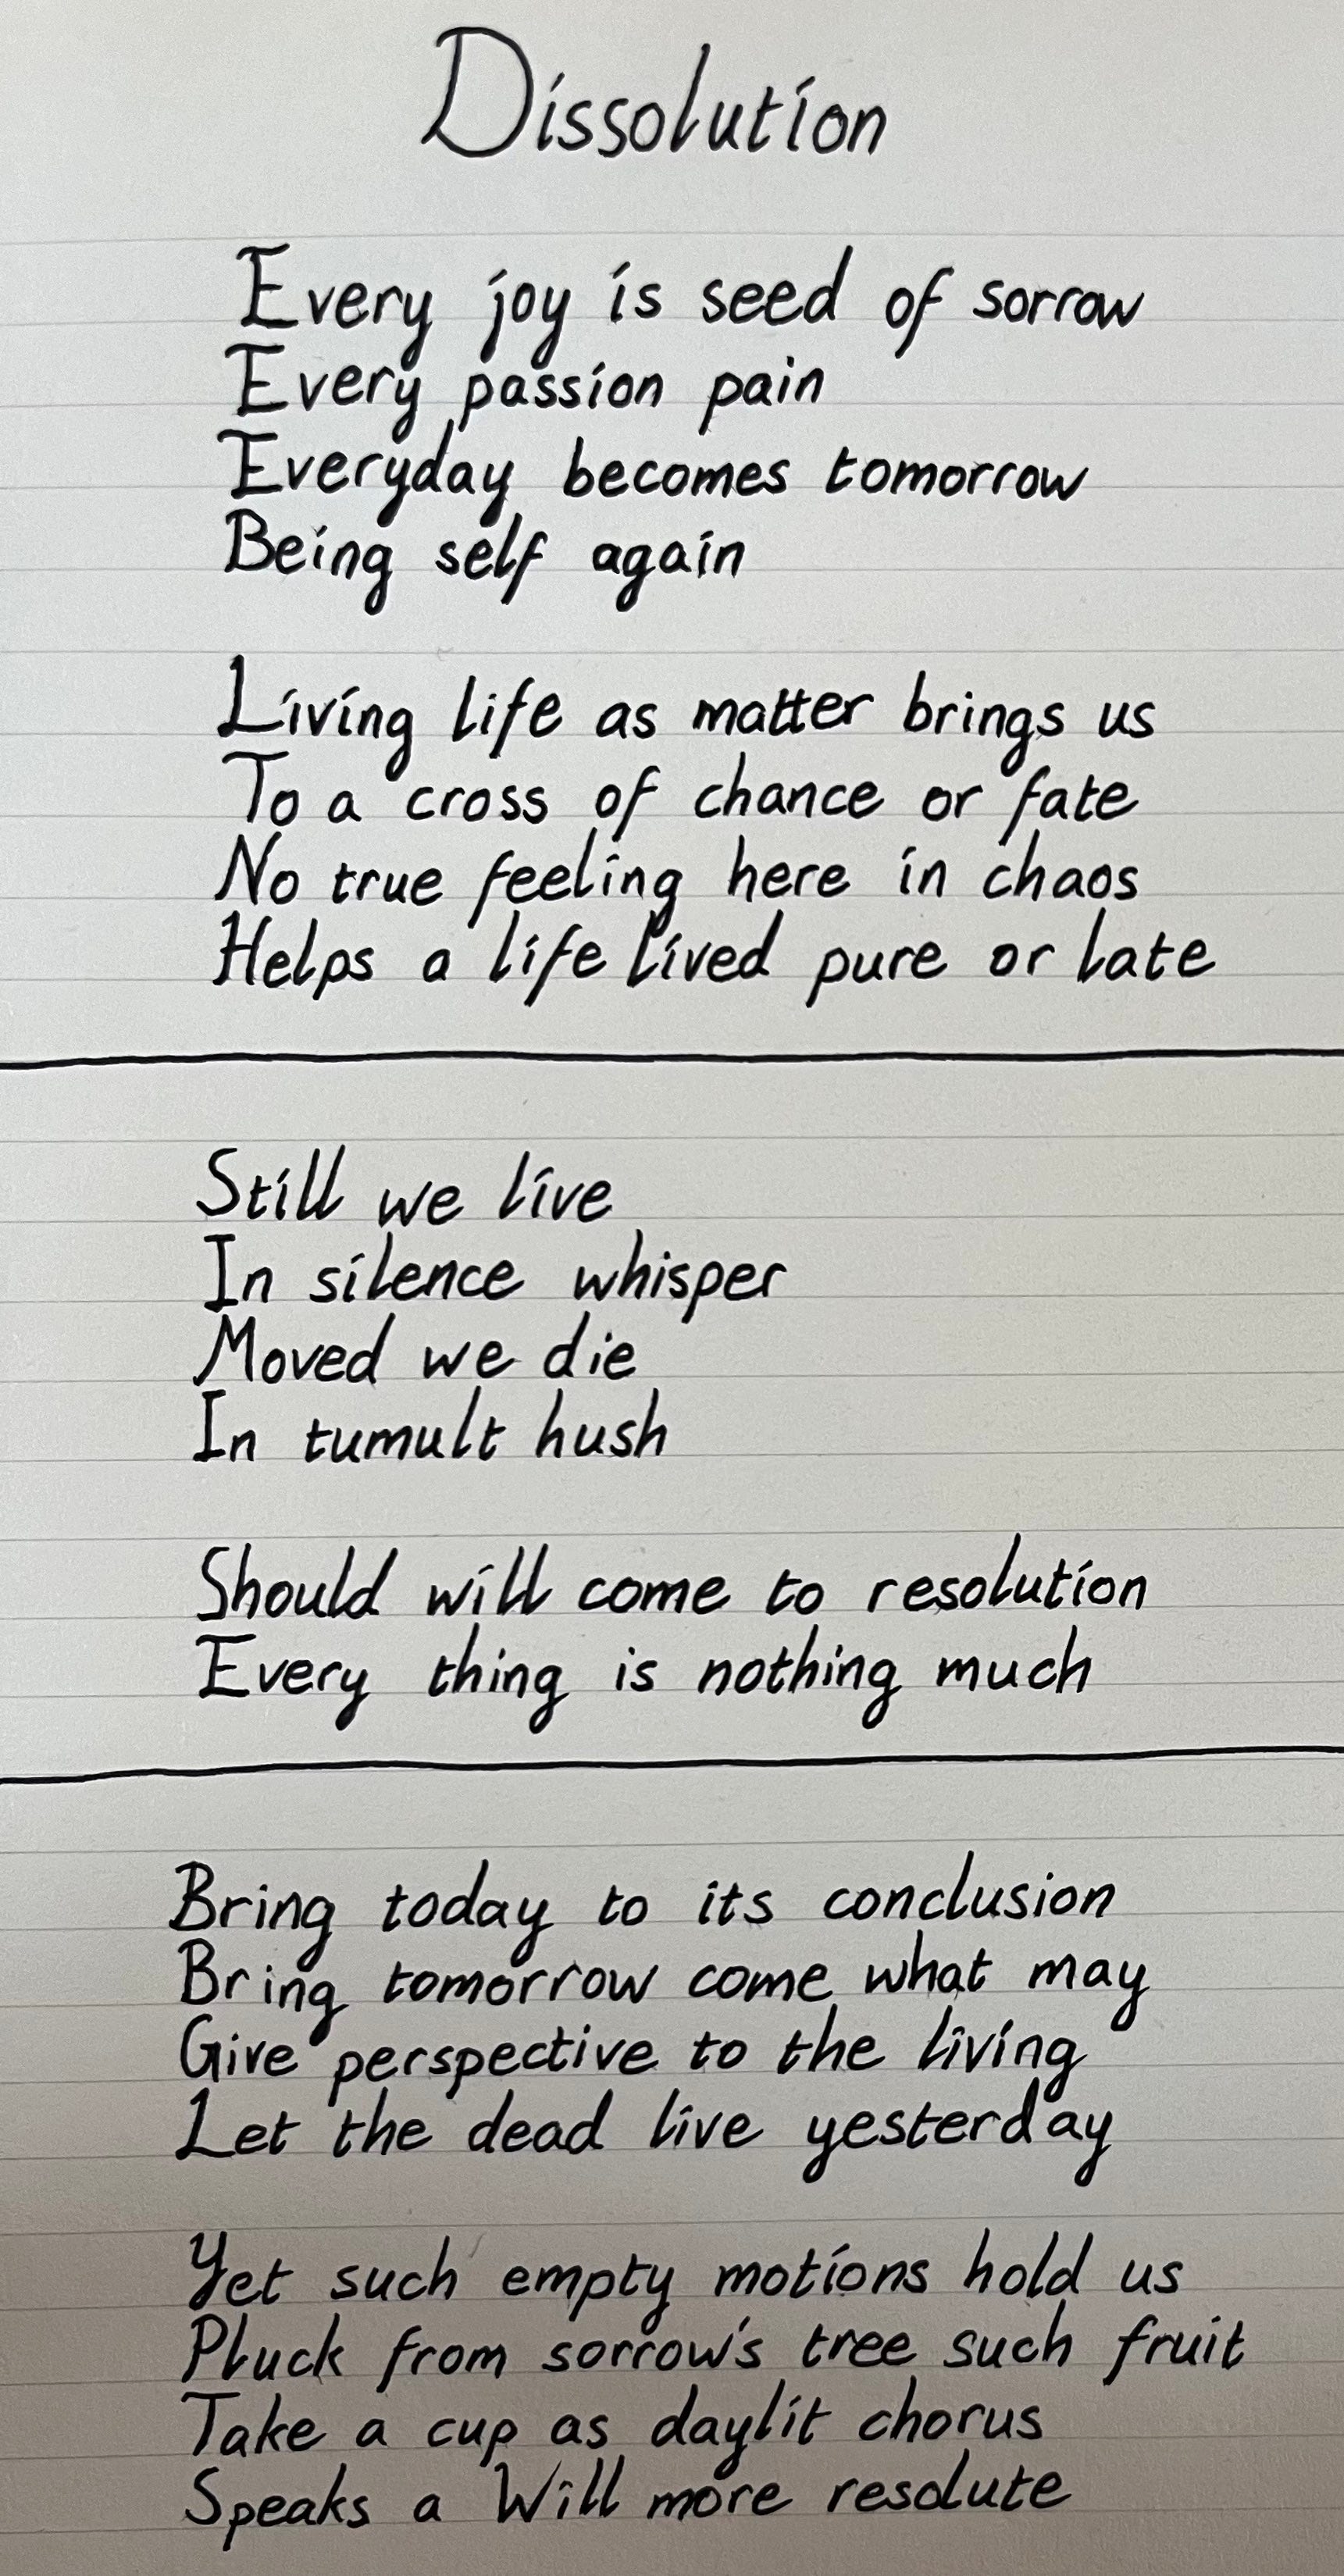 Dissolution
Every joy is seed of sorrow
Every passion pain
Everyday becomes tomorrow
Being self again
Living life as matter brings us
To a cross of chance or fate
No true feeling here in chaos
Helps a life lived pure or late
Still we live
In silence whisper
Moved we die
In tumult hush
Should will come to resolution
Every thing is nothing much
Bring today to its conclusion
Bring tomorrow come what may
Give perspective to the living
Let the dead live yesterday
Yet such empty motions hold us
Pluck from sorrow's tree such fruit
Take a cup as daylit chorus
Speaks a Will more resolute